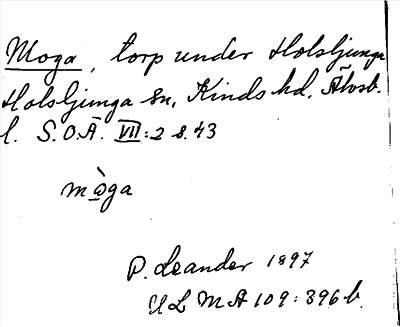 Moga, torp under Holsljunga
Holsljunga sn, Kinds hd. Älvsb.
l. S.O.Ä. VII:2 s. 43
mòga
P. Leander 1897
ULMA 109:396 b.